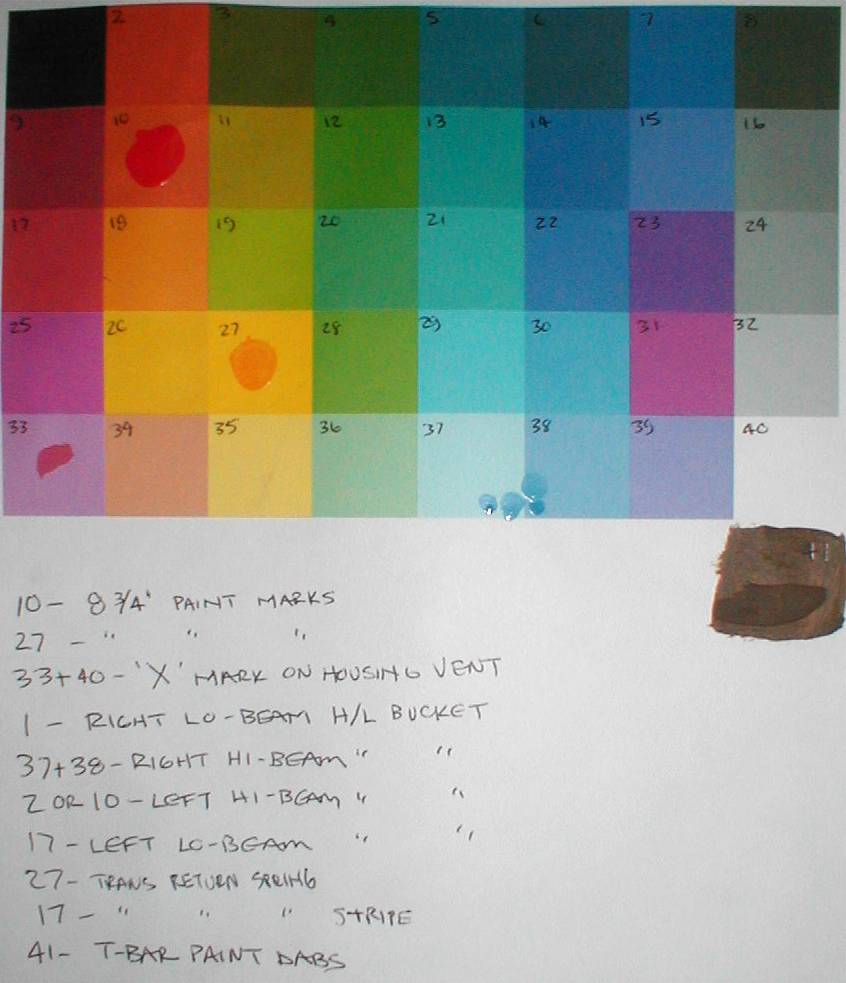 2 3 4 5 6 7 8
9 10 11 12 13 14 15 16
17 18 19 20 21 22 23 24
25 26 27 28 29 30 31 32
33 34 35 36 37 38 39 40
41
10 - 8 3/4" PAINT MARKS
27 - " " "
33+40 - 'X' MARK ON HOUSING VENT
1 - RIGHT LO-BEAM H/L BUCKET
37+38 - RIGHT HI-BEAM " "
2 OR 10 - LEFT HI-BEAM " "
17 - LEFT LO-BEAM " "
27 - TRANS RETURN SPRING
17 - " " " STRIPE
41 - T-BAR PAINT DABS